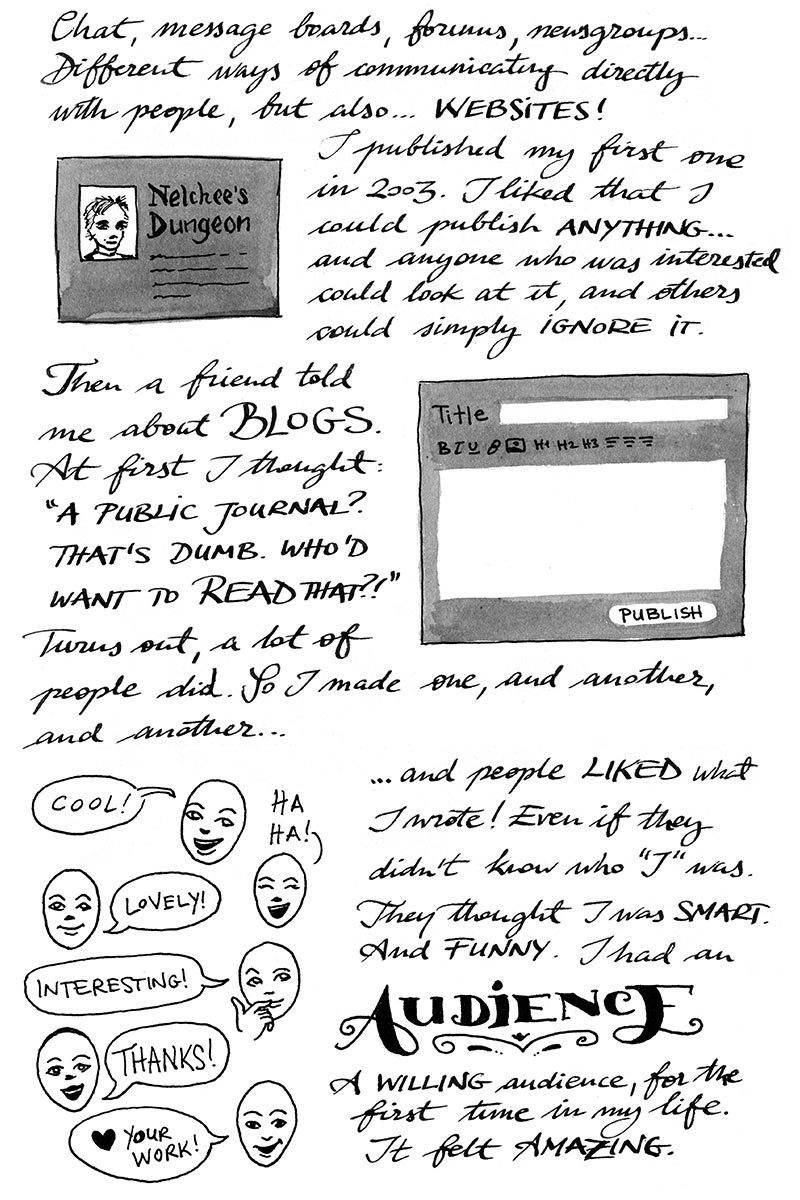 Chat, message boards, forums, newsgroups...
Different ways of communicating directly
with people, but also... WEBSITES!
Nelchee's
Dungeon
I published my first one
in 2003. I liked that I
could publish ANYTHING...
and anyone who was interested
could look at it, and others
could simply IGNORE IT.
Then a friend told
me about BLOGS.
At first I thought:
"A PUBLIC JOURNAL?
THAT'S DUMB. WHO'D
WANT TO READ THAT?!"
Title
B I U H1 H2 H3
PUBLISH
Turns out, a lot of
people did. So I made one, and another,
and another...
COOL!
HA
HA!
LOVELY!
INTERESTING!
THANKS!
♥ YOUR
WORK!
...and people LIKED what
I wrote! Even if they
didn't know who "I" was.
They thought I was SMART.
And FUNNY. I had an
AUDIENCE
A WILLING audience, for the
first time in my life.
It felt AMAZING.